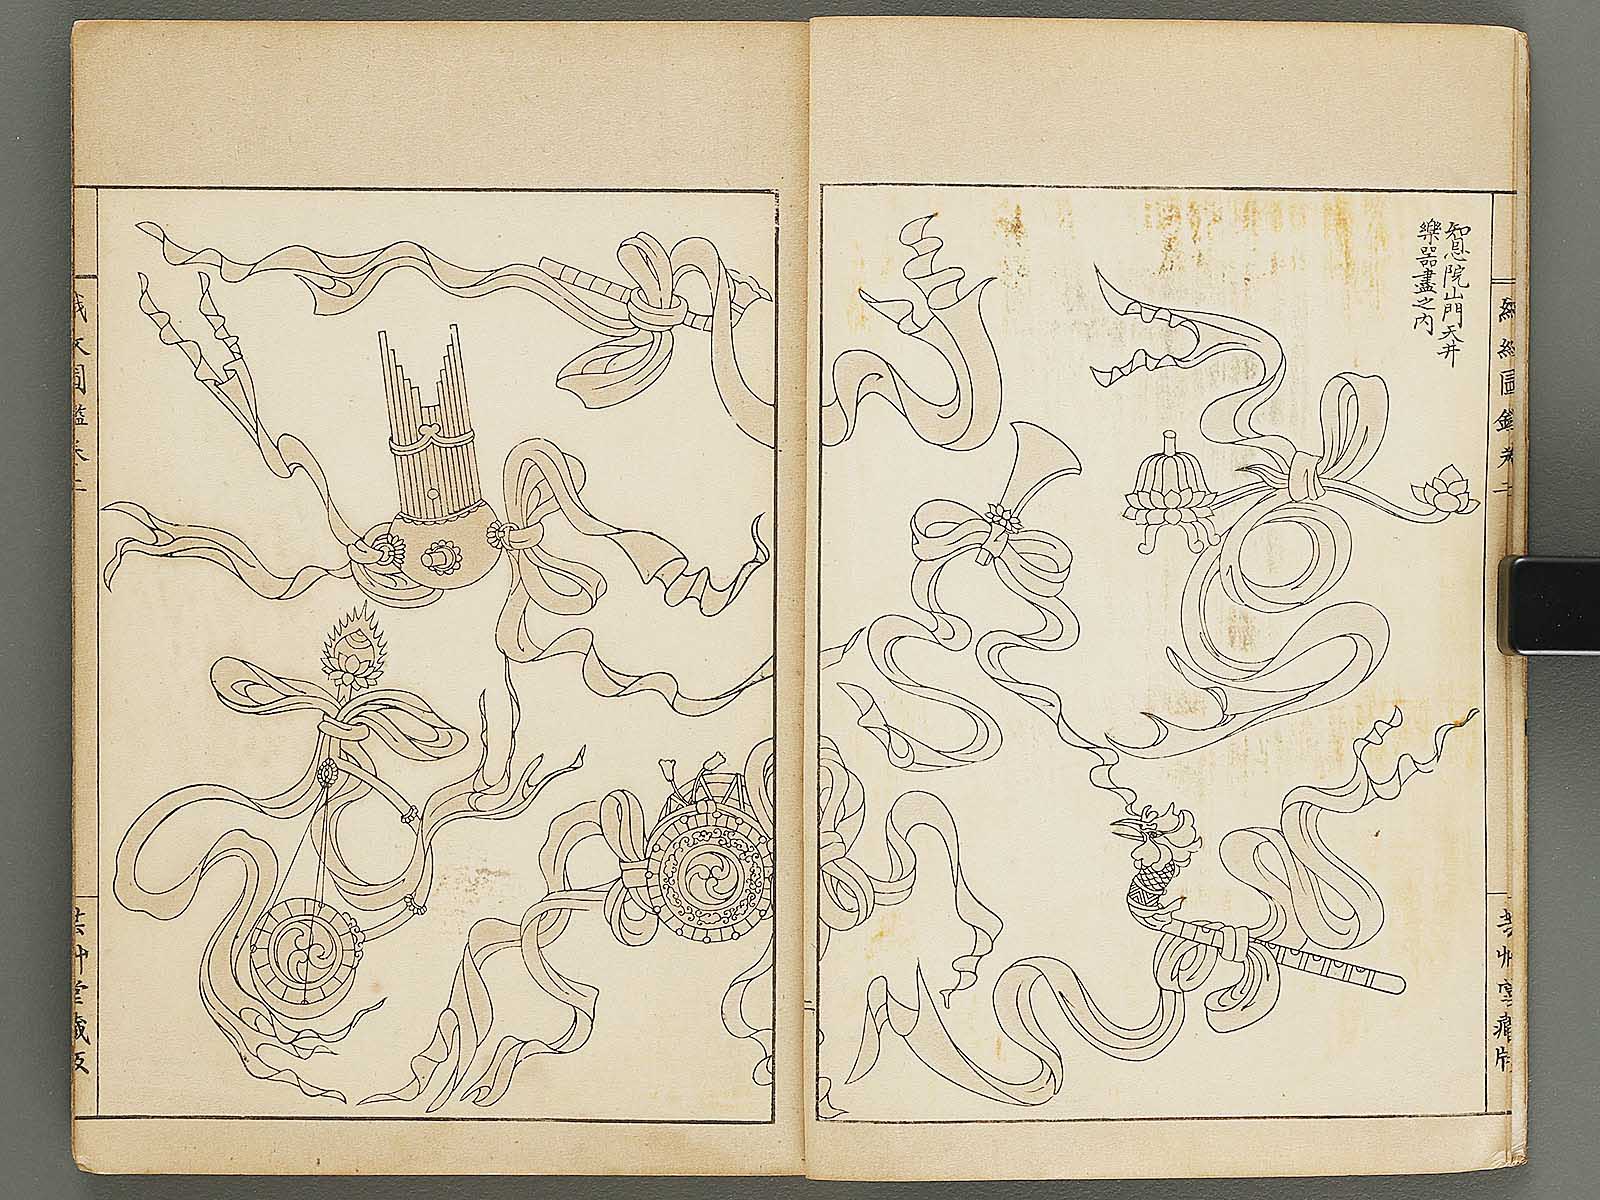 知恩院山門天井
樂器盡之内
織紋圖鑑卷二
芸艸堂藏版
織紋圖鑑卷二
芸艸堂藏版